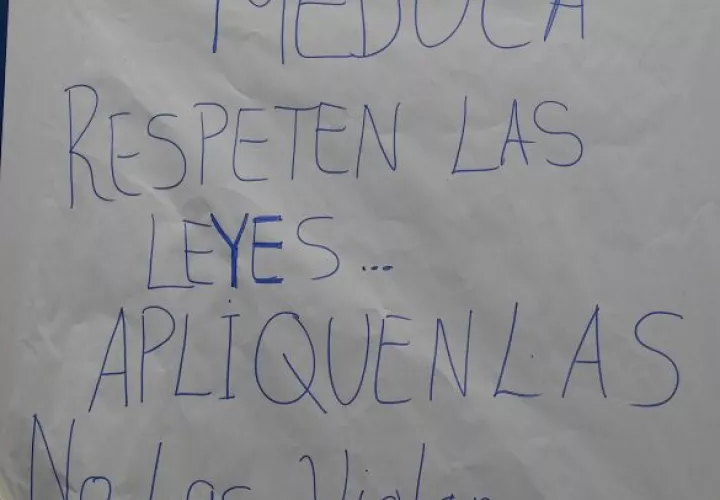 MEDUCA
RESPETEN LAS
LEYES...
APLIQUENLAS
No Las Violen